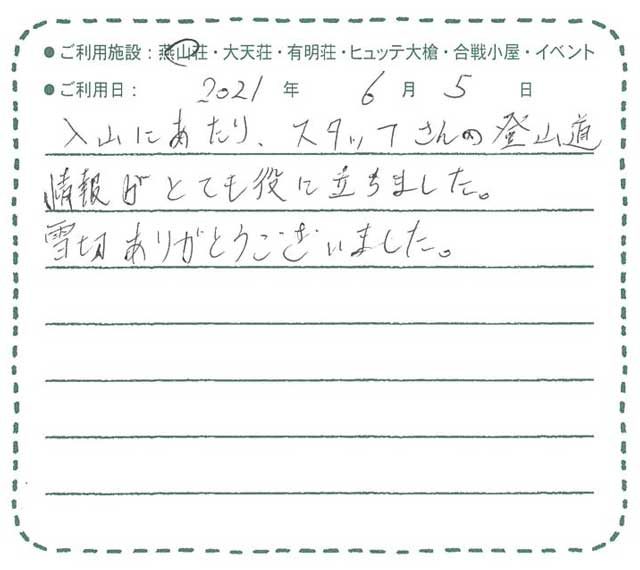 ●ご利用施設：燕山荘・大天荘・有明荘・ヒュッテ大槍・合戦小屋・イベント
●ご利用日： 2021 年 6 月 5 日
入山にあたり、スタッフさんの登山道
情報がとても役に立ちました。
雪切ありがとうございました。